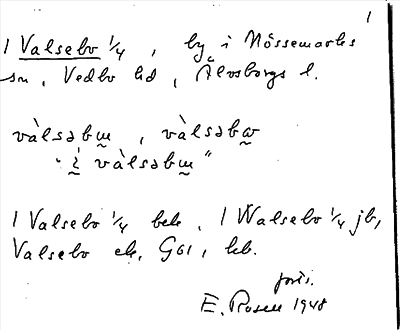 1
1 Valsebo 1/4, by i Nössemarks
sn, Vedbo hd, Älvsborgs l.
vàlsəbɯ, vàlsəbɷ
"i̤ vàlsəbɯ"
1 Valsebo 1/4 bek, 1 Walsebo 1/4 jb,
Valsebo ek, G61, kb.
E. Rosell 1948